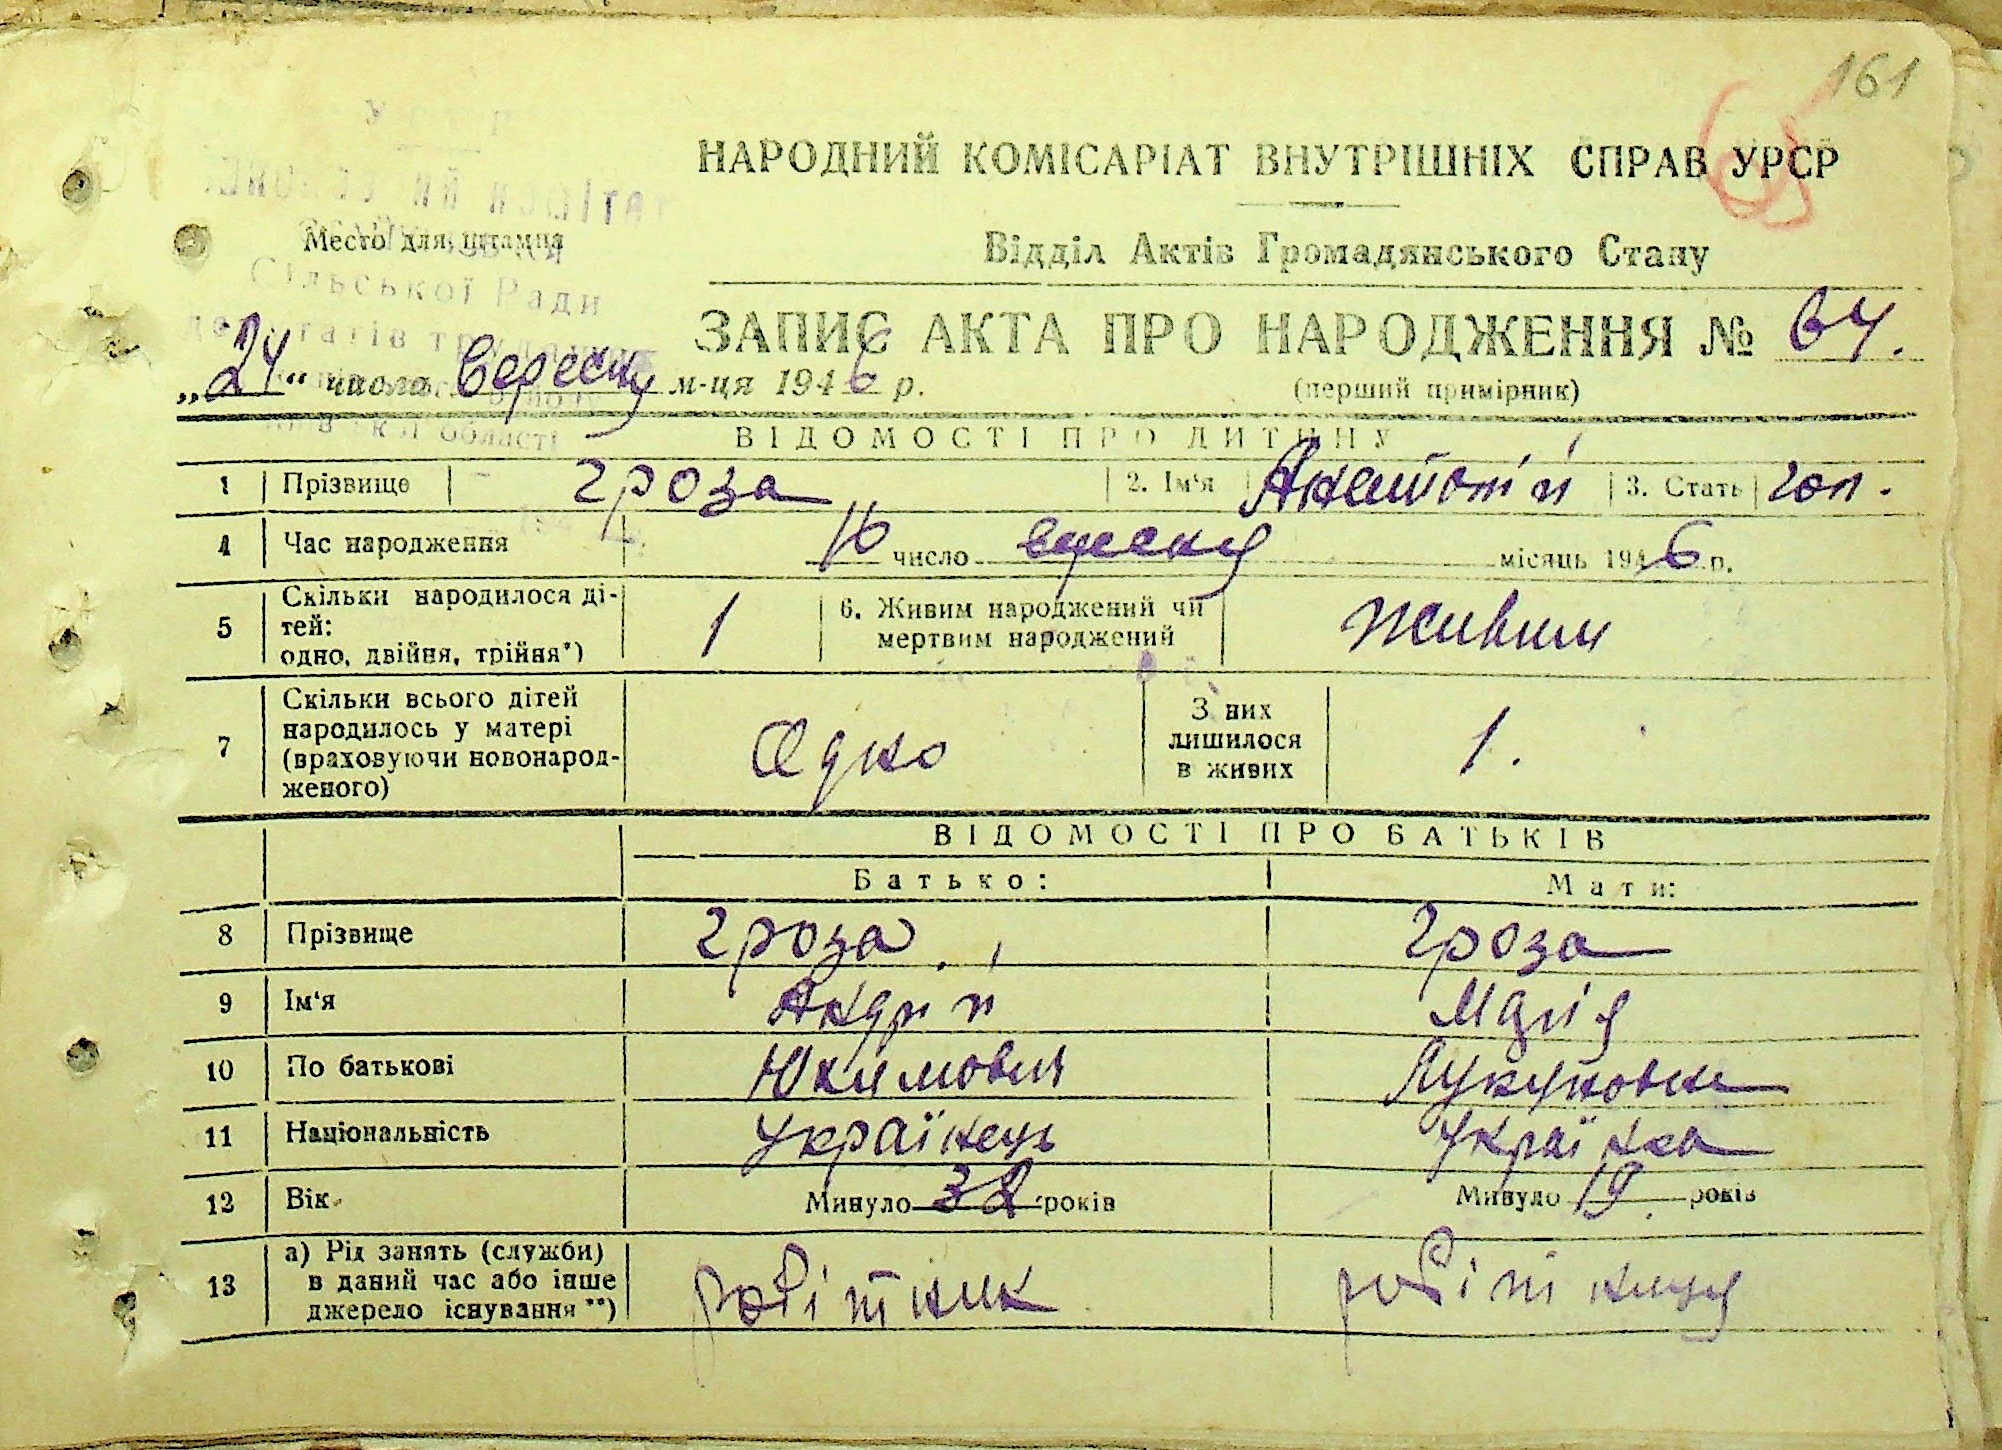 161
НАРОДНИЙ КОМІСАРІАТ ВНУТРІШНІХ СПРАВ УРСР
Место для штампа
Відділ Актів Громадянського Стану
Сільської Ради
ЗАПИС АКТА ПРО НАРОДЖЕННЯ № 64.
„24“ числа Вересня м-ця 1946 р.
(перший примірник)
області
ВІДОМОСТІ ПРО ДИТИНУ
1 Прізвище Гроза 2. Ім'я Анатолій 3. Стать чол.
4 Час народження 16 число вересня місяць 1946 р.
5 Скільки народилося ді-
тей:
одно, двійня, трійня*) 1 6. Живим народжений чи
мертвим народжений Живим
7 Скільки всього дітей
народилось у матері
(враховуючи новонарод-
женого) Одно З них
лишилося
в живих 1.
ВІДОМОСТІ ПРО БАТЬКІВ
Батько: Мати:
8 Прізвище Гроза Гроза
9 Ім'я Андрій Марія
10 По батькові Юхимович
11 Національність Українець Українка
12 Вік Минуло 32 років Минуло 19 років
13 а) Рід занять (служби)
в даний час або інше
джерело існування**) робітник робітниця